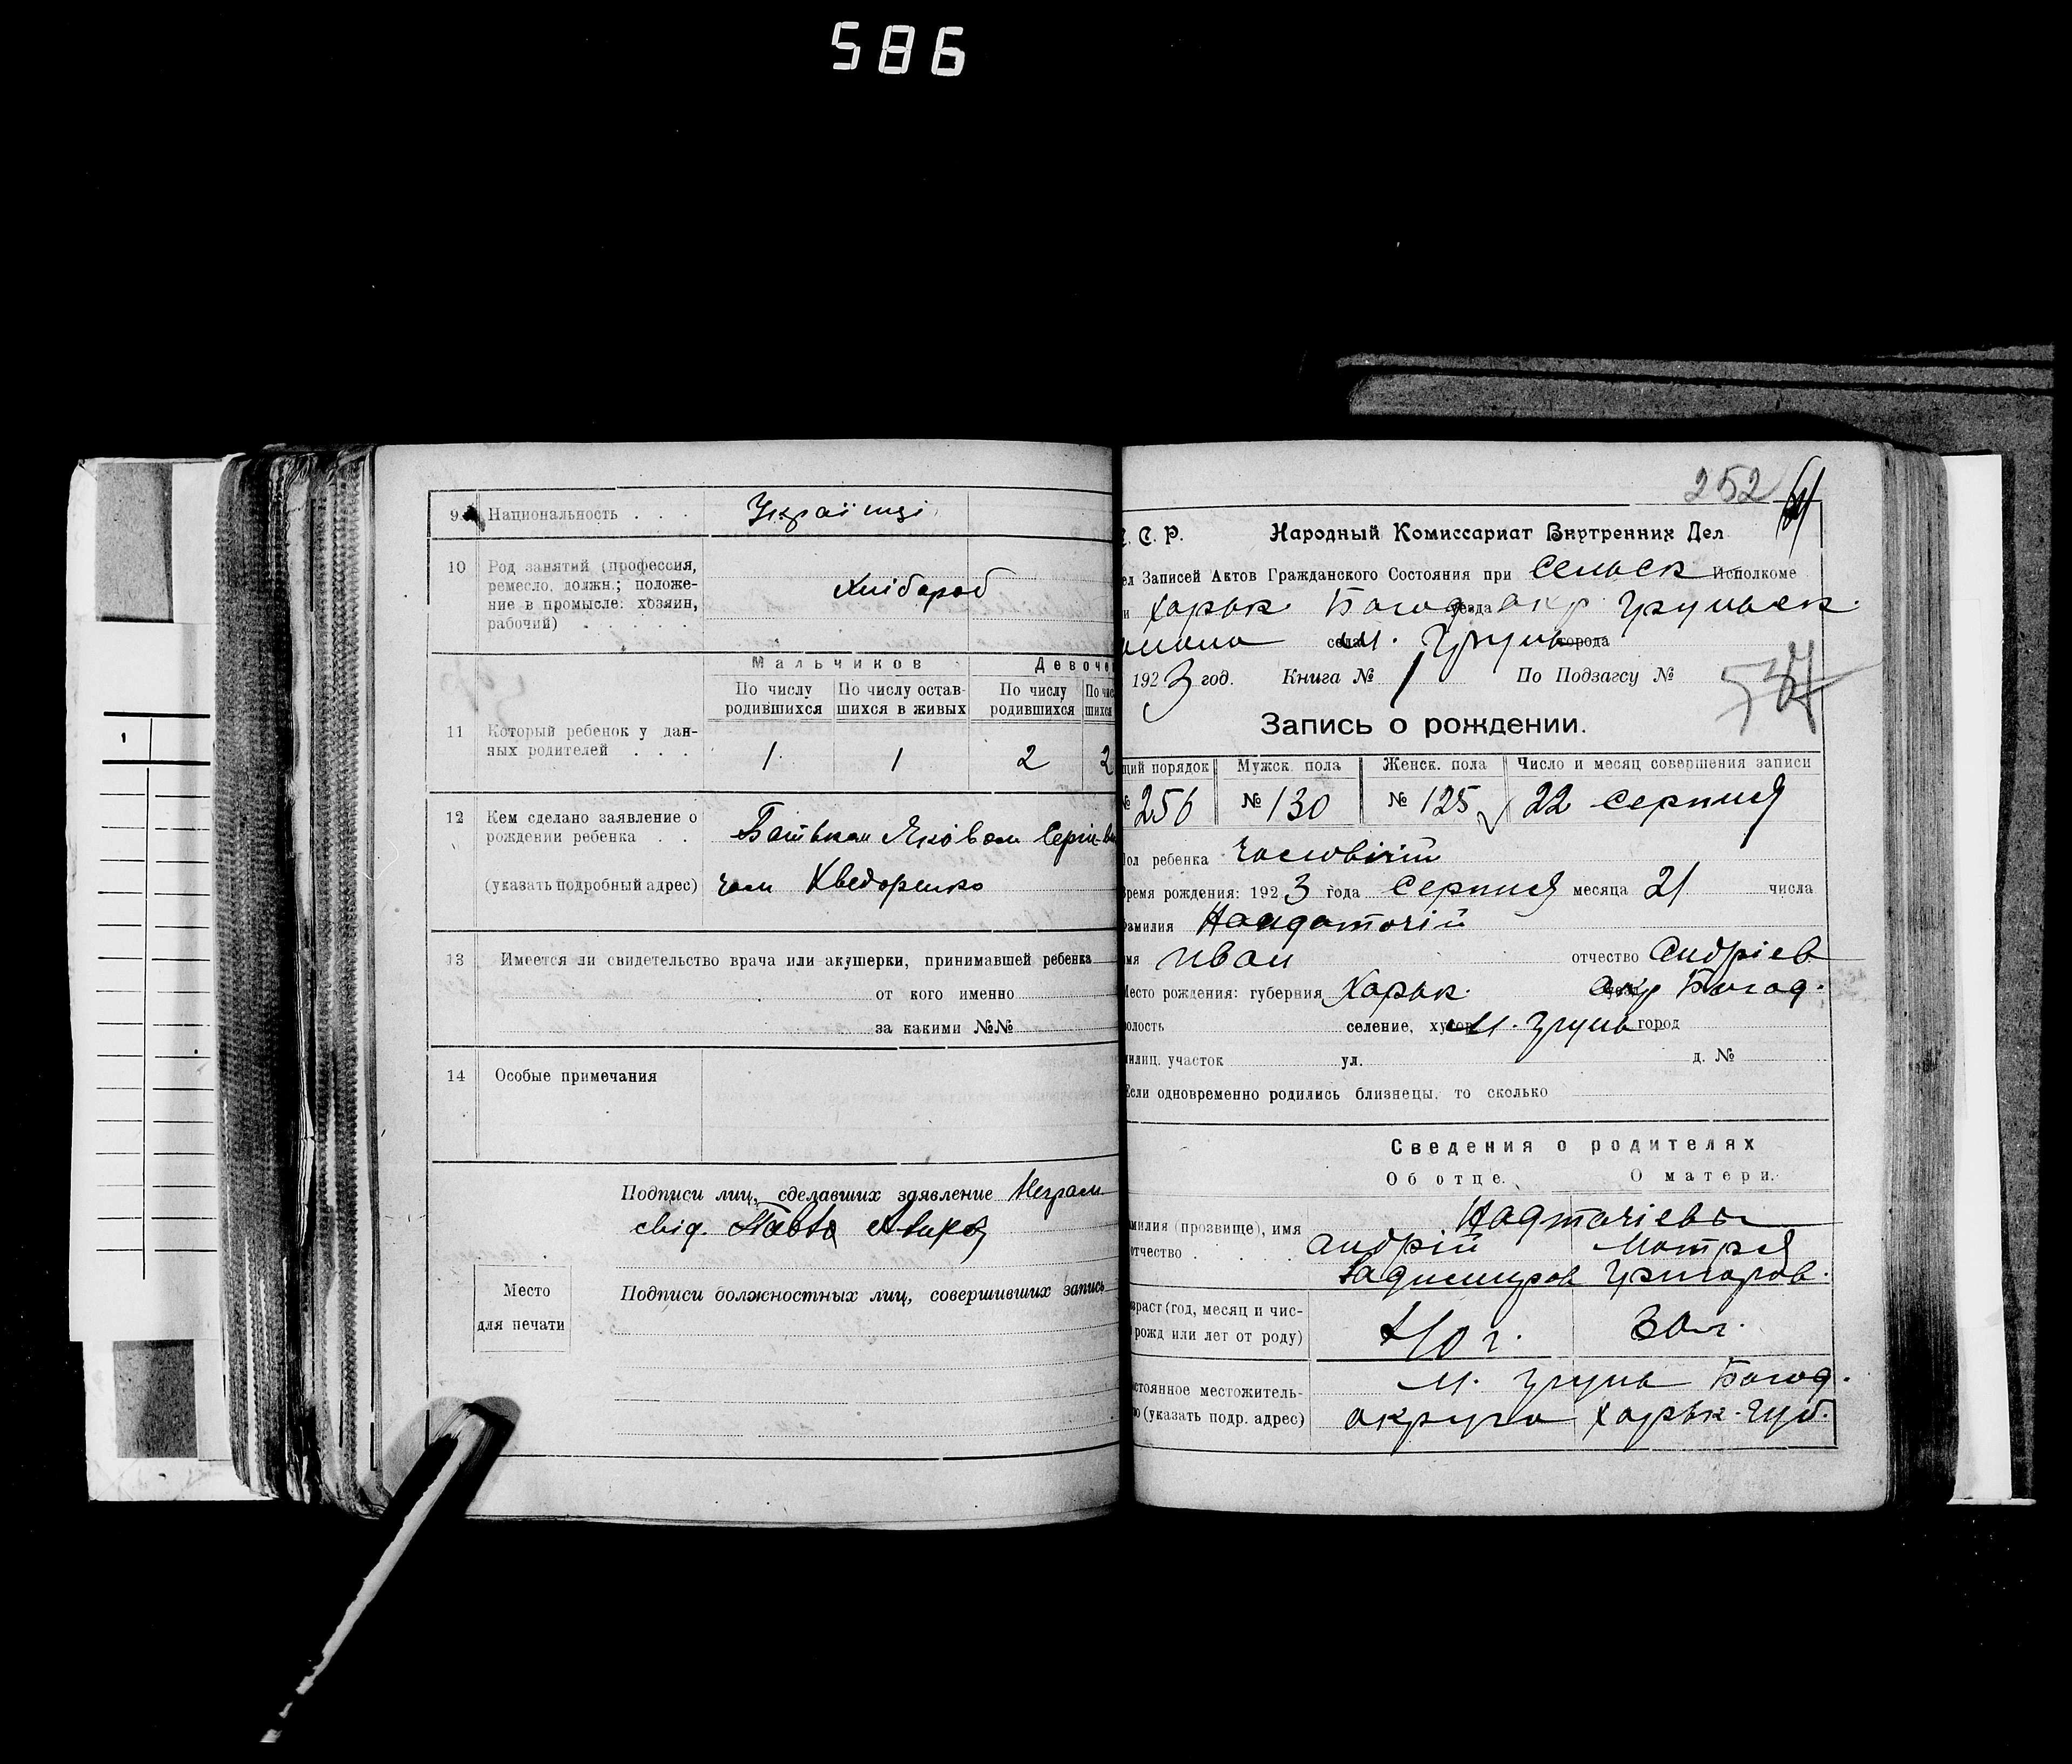 586
9. Национальность . . . Українці
10 Род занятий (профессия, ремесло, должн.; положение в промысле: хозяин, рабочий) . . . . . Хлібороб
Мальчиков Девоче
По числу родившихся По числу оставшихся в живых По числу родившихся По чис шихся
11 Который ребенок у данных родителей . . . 1 1 2 2
12 Кем сделано заявление о рождении ребенка . . Батьком Яковом Сергіеви
(указать подробный адрес) чом
13 Имеется ли свидетельство врача или акушерки, принимавшей ребенка
от кого именно
за какими №№
14 Особые примечания
Подписи лиц, сделавших заявление Неграм
свід.
Место для печати
Подписи должностных лиц, совершивших запись
252
. С. Р. Народный Комиссариат Внутренних Дел
ел Записей Актов Гражданского Состояния при Сельск Исполкоме
и Харьк Богод уезда окр
села м. города
1923 год. Книга № 1 По Подзагсу №
Запись о рождении.
щий порядок Мужск. пола Женск. пола Число и месяц совершения записи
№ 256 № 130 № 125 22 серпня
Пол ребенка чоловічий
Время рождения: 1923 года серпня месяца 21 числа
Фамилия
имя Иван отчество Андріев
Место рождения: губерния Харьк. окр Богод.
волость селение, хутор м. город
милиц. участок ул. д. №
Если одновременно родились близнецы, то сколько
Сведения о родителях
Об отце. О матери.
амилия (прозвище), имя
отчество . . . Андрій Мотря
Григоров.
зраст (год, месяц и чис- рожд или лет от роду) 40 г. 30 г.
стоянное местожитель- во (указать подр. адрес) м. Богод.
округа Харьк. губ.